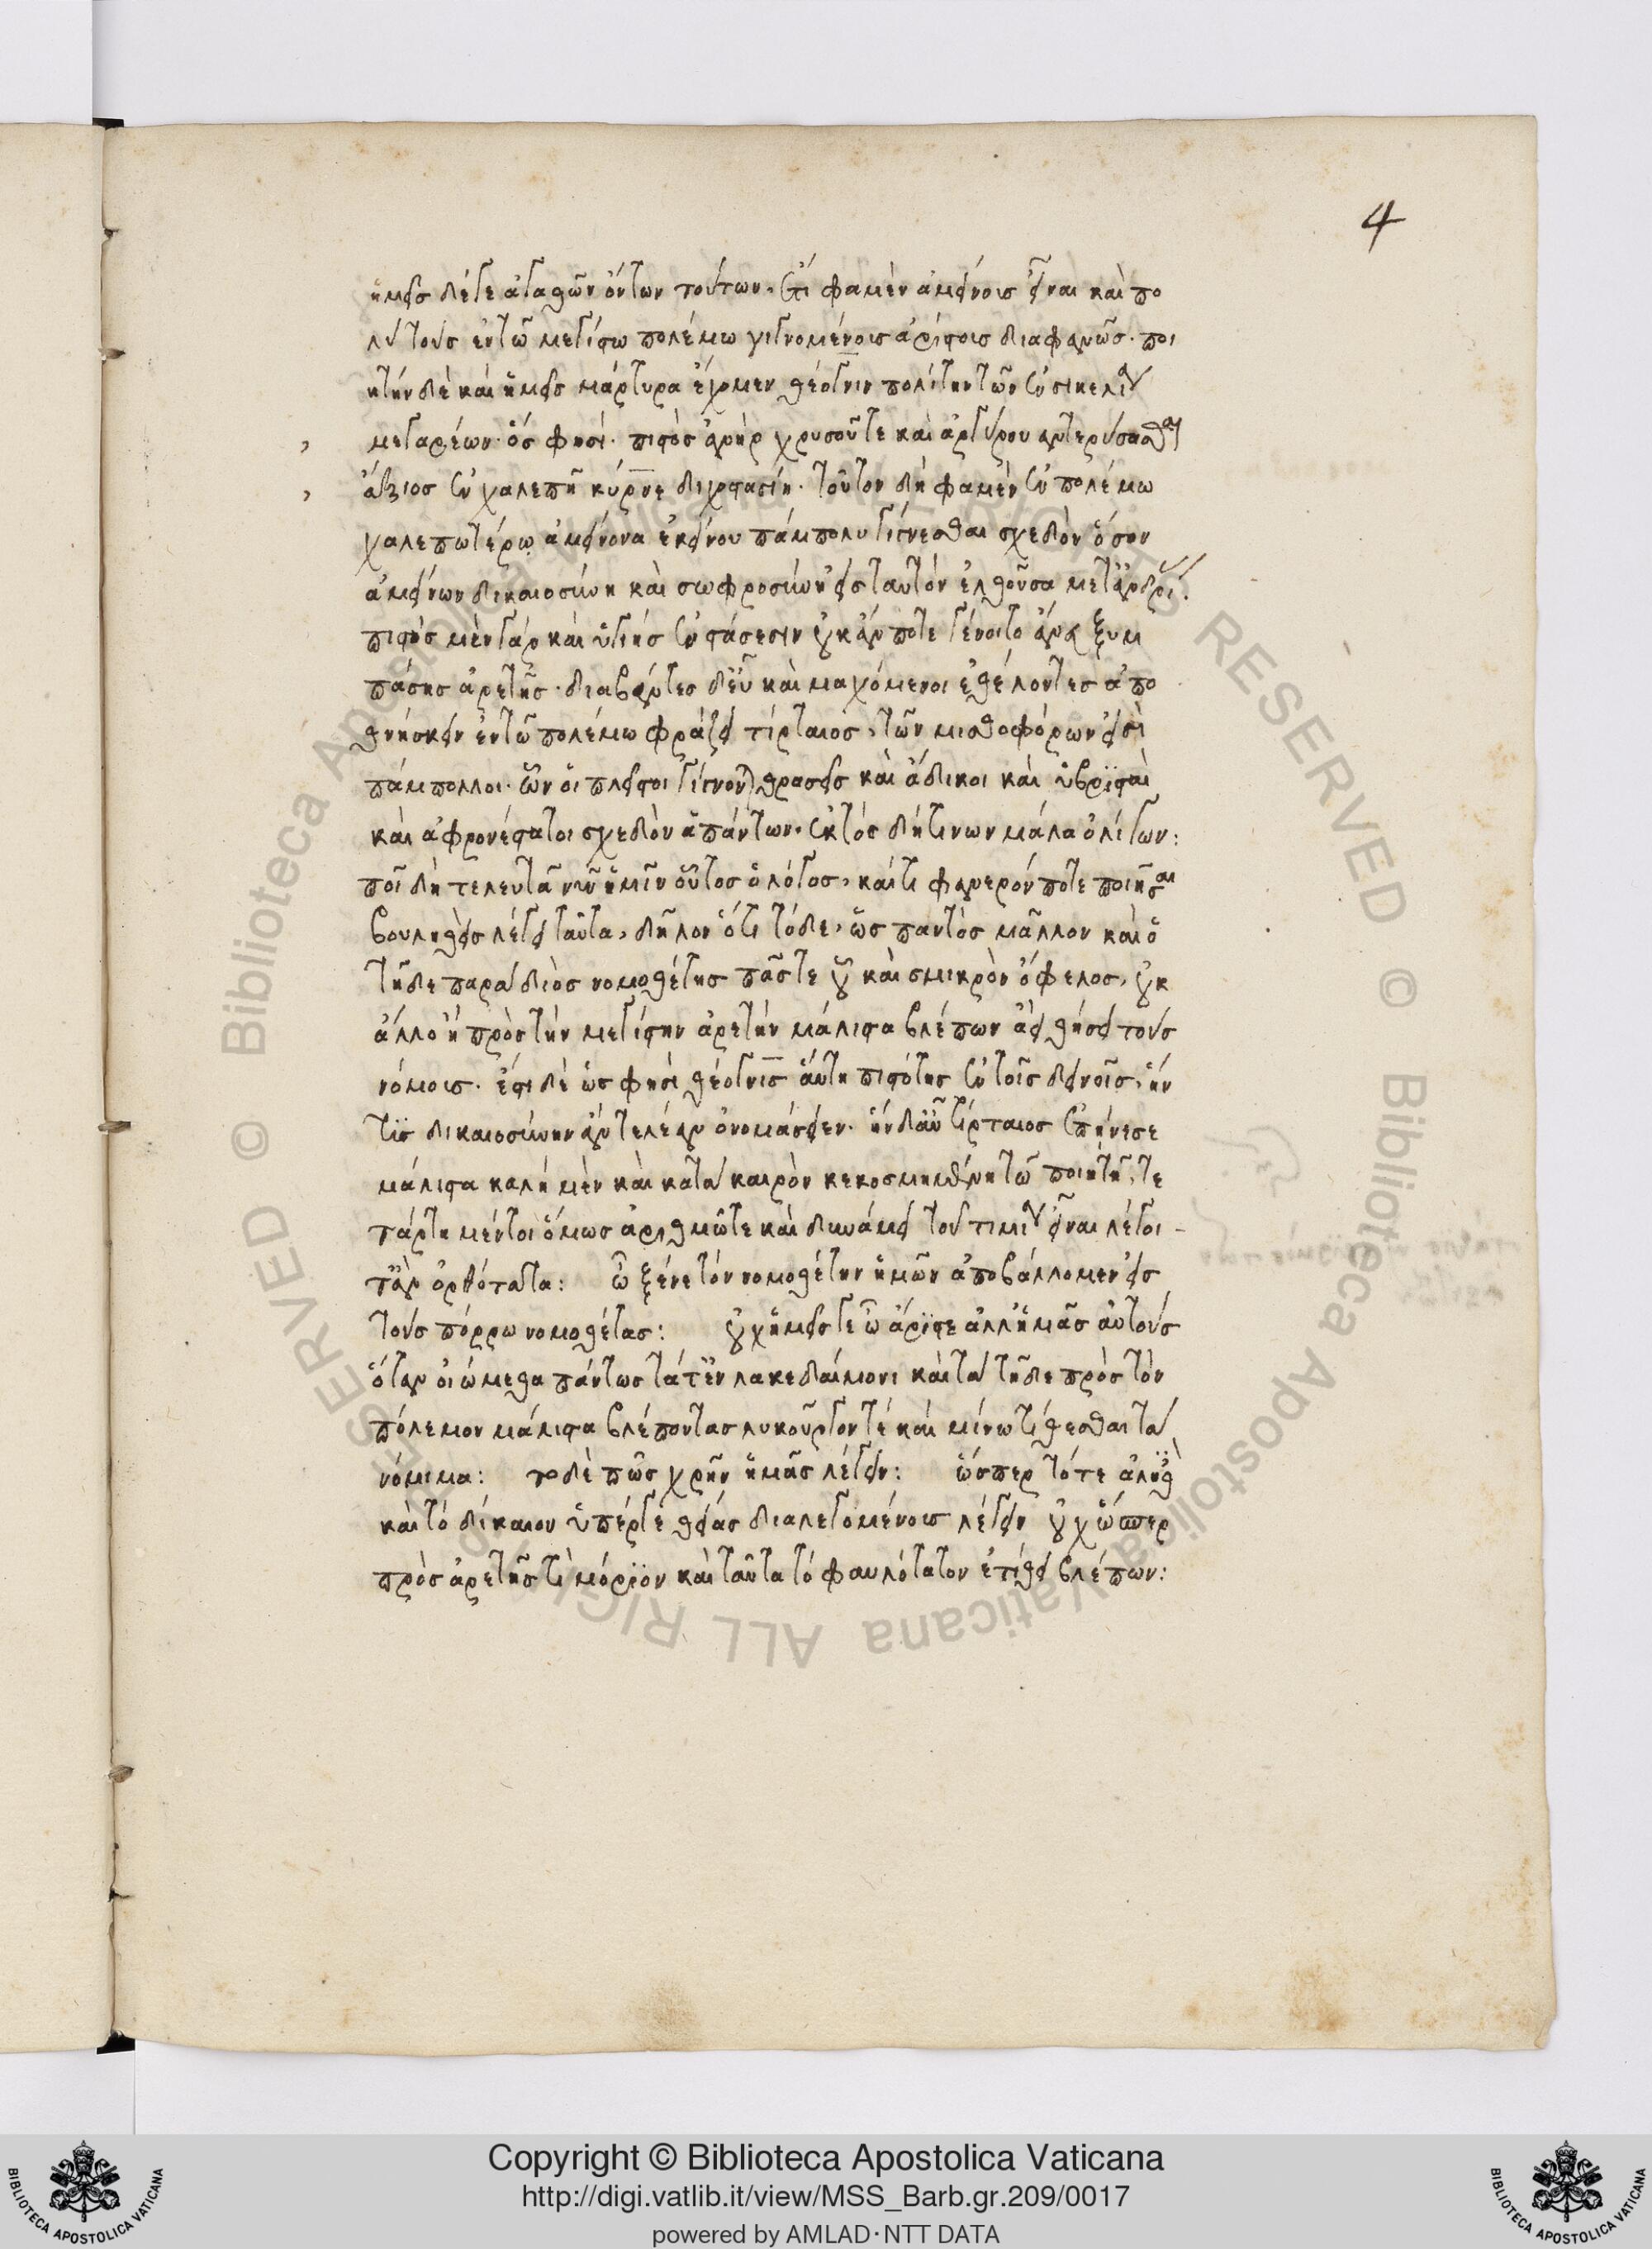 4
ἡμεῖς δέ γε ἀγαθῶν ὄντων τούτων. ἔτι φαμὲν ἀμείνους εἶναι καὶ πο
λὺ τοὺς ἐν τῶ μεγίστω πολέμω γιγνομένους ἀρίστους διαφανῶς. ποι
ητὴν δὲ καὶ ἡμεῖς μάρτυρα ἔχομεν θέογνιν πολίτην τῶν ἐν σικελία
μεγαρέων. ὅς φησί. πιστὸς ἀνὴρ χρυσοῦ τε καὶ ἀργύρου ἀντερύσασθαι
ἄξιος ἐν χαλεπῆ κύρνε διχοστασίη. τοῦτον δή φαμὲν ἐν πολέμω
χαλεπωτέρω ἀμείνονα ἐκείνου πάμπολυ γίγνεσθαι σχεδὸν ὅσον
ἀμείνων δικαιοσύνη καὶ σωφροσύνη εἰς ταυτὸν ἐλθοῦσα μετ' ἀνδρί.
πιστὸς μὲν γὰρ καὶ ὑγιὴς ἐν στάσεσιν οὐκ ἄν ποτε γένοιτο ἄνευ ξυμ
πάσης ἀρετῆς. διαβάντες δ' εὖ καὶ μαχόμενοι ἐθέλοντες ἀπο
θνήσκειν ἐν τῶ πολέμω φράζει τύρταιος, τῶν μισθοφόρων εἰσὶ
πάμπολλοι. ὧν οἱ πλεῖστοι γίγνονται θρασεῖς καὶ ἄδικοι καὶ ὑβρισταὶ
καὶ ἀφρονέστατοι σχεδὸν ἁπάντων. ἐκτὸς δή τινων μάλα ὀλίγων:
ποῖ δὴ τελευτᾶ νῦν ἡμῖν οὗτος ὁ λόγος, καὶ τί φανερόν ποτε ποιῆσαι
βουληθεὶς λέγει ταῦτα, δῆλον ὅτι τόδε, ὡς παντὸς μᾶλλον καὶ ὁ
τῆδε παρὰ διὸς νομοθέτης πᾶς τε οὗ καὶ σμικρὸν ὄφελος, οὐκ
ἄλλο ἢ πρὸς τὴν μεγίστην ἀρετὴν μάλιστα βλέπων ἀεὶ θήσει τοὺς
νόμους. ἔστι δὲ ὥς φησί θέογνις αὕτη πιστότης ἐν τοῖς δεινοῖς, ἥν
τις δικαιοσύνην ἂν τελέαν ὀνομάσειεν. ἣν δ' αὖ τύρταιος ἐπήνεσε
μάλιστα καλὴ μὲν καὶ κατὰ καιρὸν κεκοσμημένη τῶ ποιητῆ, τε
τάρτη μέντοι ὅμως ἀριθμῶ τε καὶ δυνάμει τοῦ τιμία εἶναι λέγοι
τ' ἂν ὀρθότατα: ὦ ξένε τὸν νομοθέτην ἡμῶν ἀποβάλλομεν εἰς
τοὺς πόρρω νομοθέτας: οὐχ ἡμεῖς γε ὦ ἄριστε ἀλλ' ἡμᾶς αὐτοὺς
ὅταν οἰώμεθα πάντως τά τ' ἐν λακεδαίμονι καὶ τὰ τῆδε πρὸς τὸν
πόλεμον μάλιστα βλέποντας λυκοῦργόν τέ καὶ μίνω τίθεσθαι τὰ
νόμιμα: τὸ δὲ πῶς χρῆν ἡμᾶς λέγειν: ὥσπερ τό τε ἀληθὲ
καὶ τὸ δίκαιον ὑπέρ γε θείας διαλεγομένους λέγειν οὐχ ὥσπερ
πρὸς ἀρετῆς τι μόριον καὶ ταῦτα τὸ φαυλότατον ἐτίθει βλέπων:
© Biblioteca Apostolica Vaticana ALL RIGHTS RESERVED
© Biblioteca Apostolica Vaticana ALL RIGHTS RESERVED
Copyright © Biblioteca Apostolica Vaticana
http://digi.vatlib.it/view/MSS_Barb.gr.209/0017
powered by AMLAD·NTT DATA
BIBLIOTECA APOSTOLICA VATICANA
BIBLIOTECA APOSTOLICA VATICANA